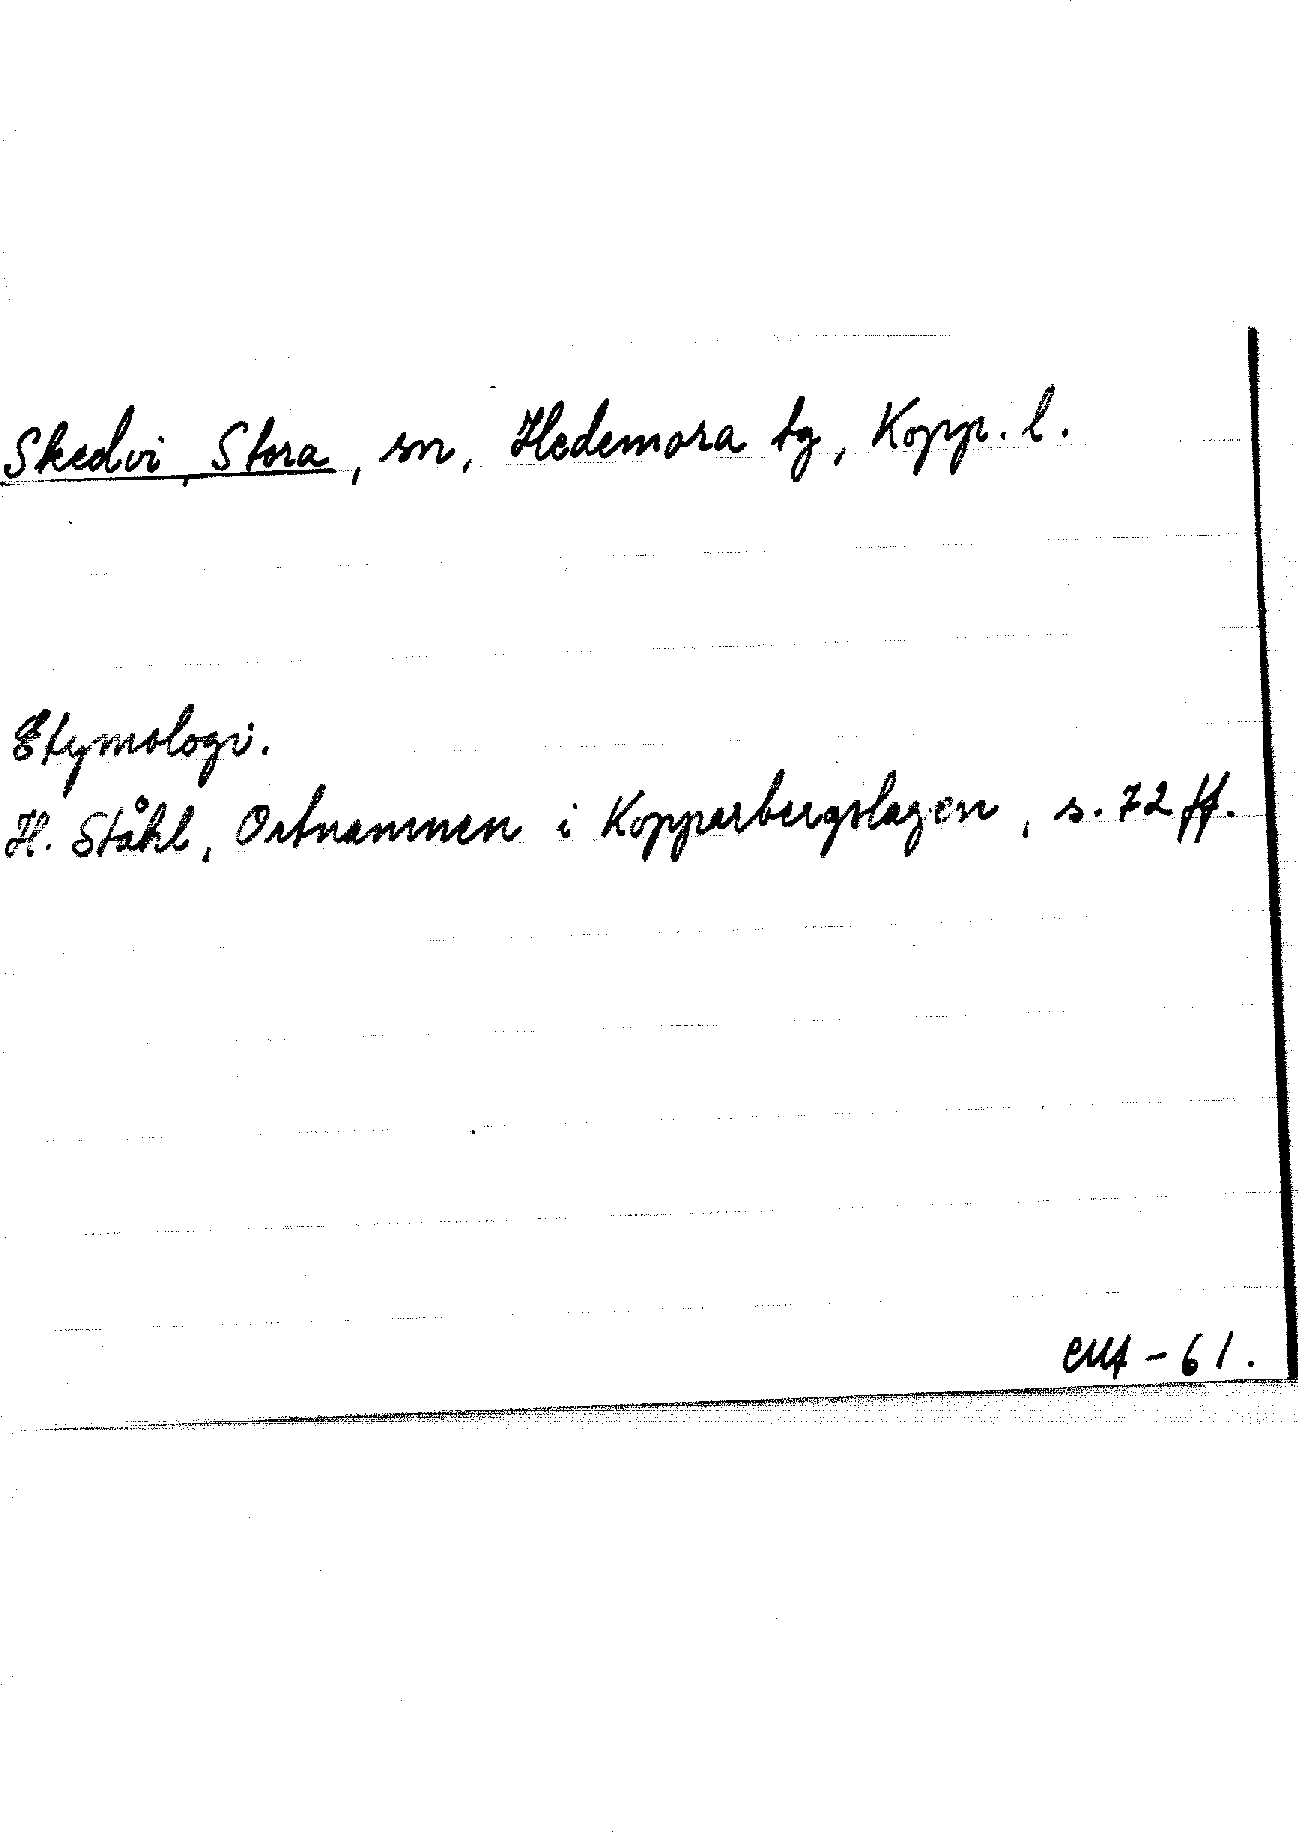 Skedvi, Stora, sn, Hedemora tg, Kopp. l.
Etymologi.
H. Ståhl, Ortnamnen i Kopparbergslagen, s. 72 ff.
-61.